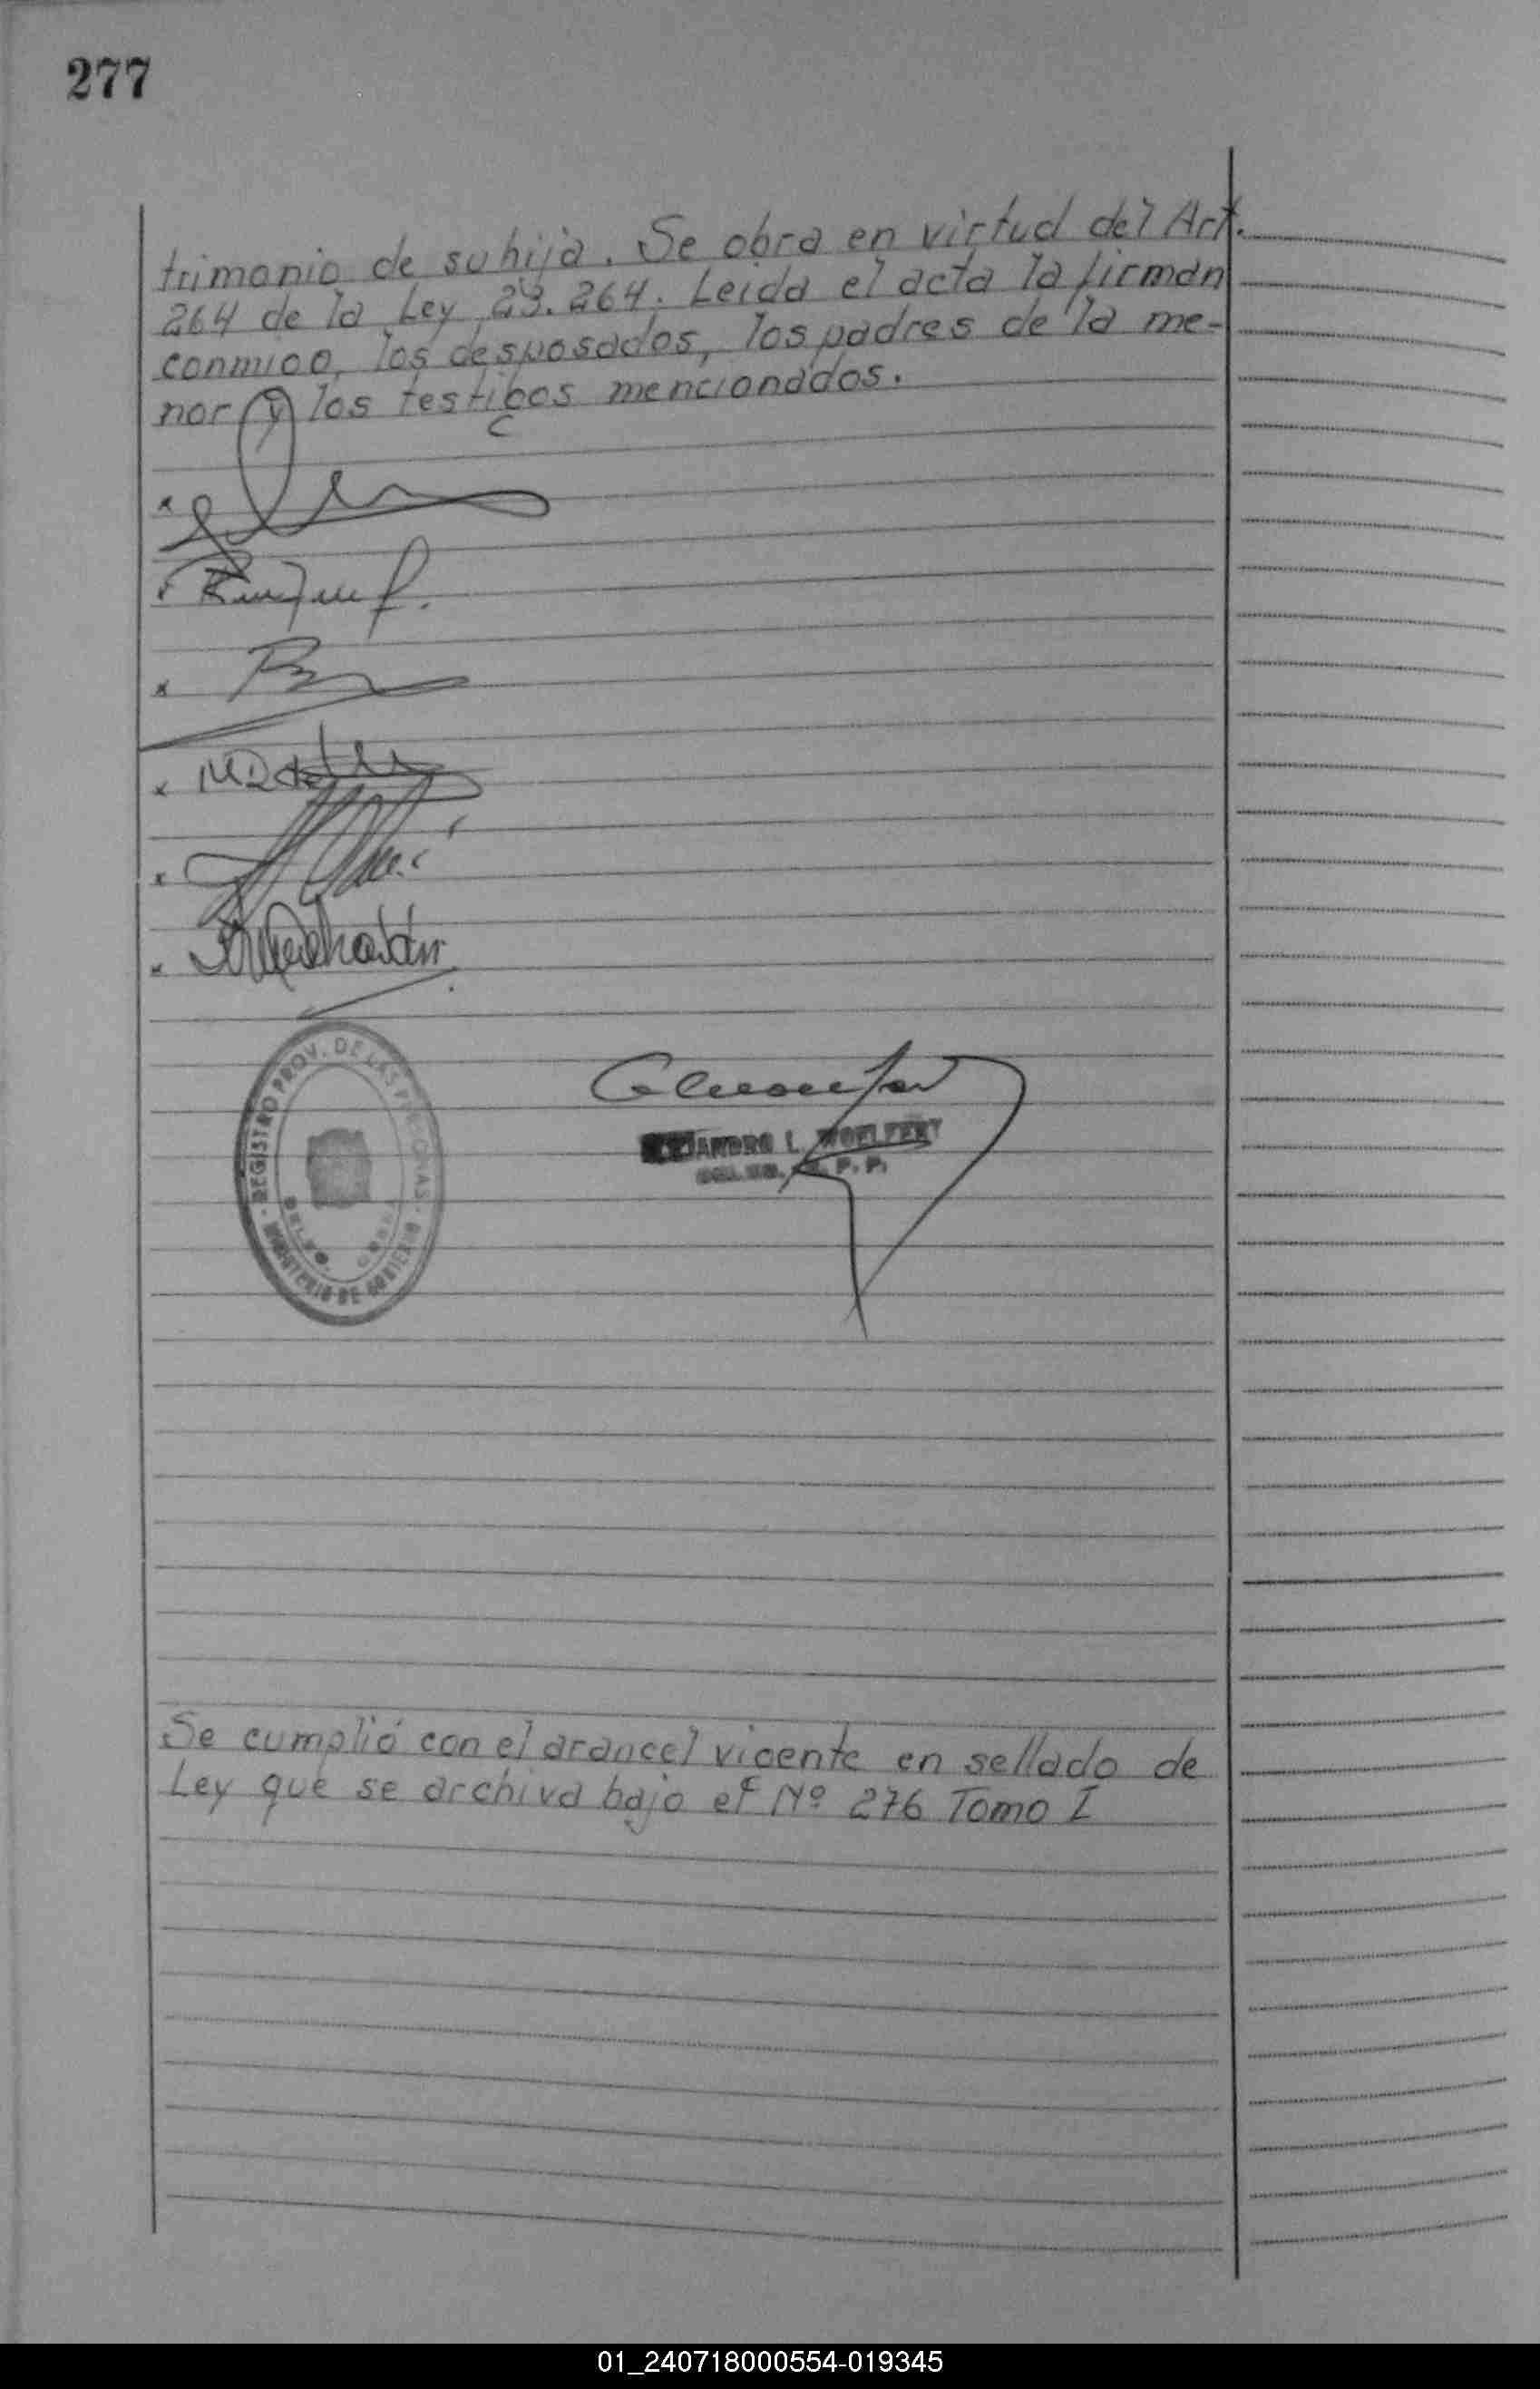 277
trimonio de su hija. Se obra en virtud del Art.
264 de la Ley 23.264. Leida el acta la firman
conmigo, los desposados, los padres de la me-
nor y los testigos mencionados.
REGISTRO PROV. DE LAS PERSONAS
MINISTERIO DE GOBIERNO
ANDRO L. WOELFERT
Se cumplió con el arancel vigente en sellado de
Ley que se archiva bajo el Nº 276 Tomo I
01_240718000554-019345